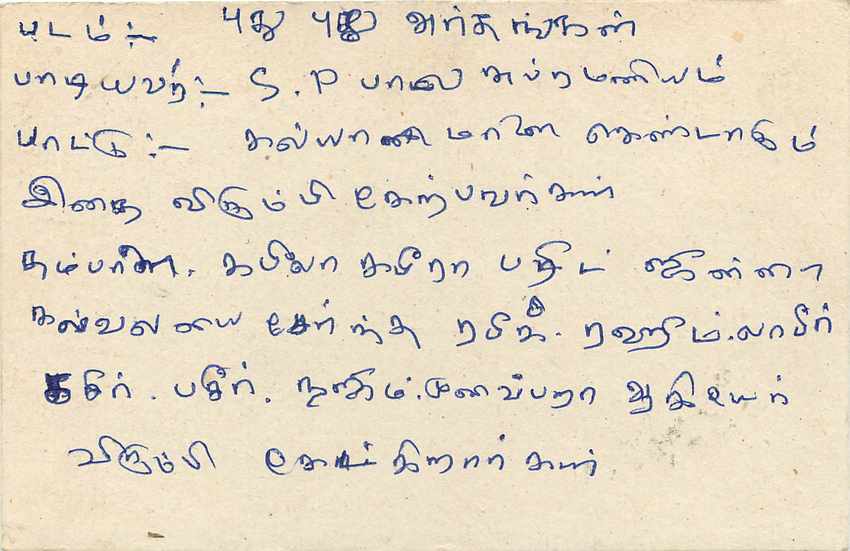 படம்:- புது புது அர்தங்கள்
பாடியவர்:- S.P பாலசுப்ரமணியம்
பாட்டு:- கல்யாணமாலை கொண்டாடும்
இதை விரும்பி கேற்பவர்கள்
தம்பாளை. கபிலா கபீறா பதிட் ஜின்னா
கல்வலயை சேர்ந்த ரபிக். ரஹீம். லாபீர்
கசீர். பசீர். நஜிம். ஆகியயர்
விரும்பி கேட்கிறார்கள்